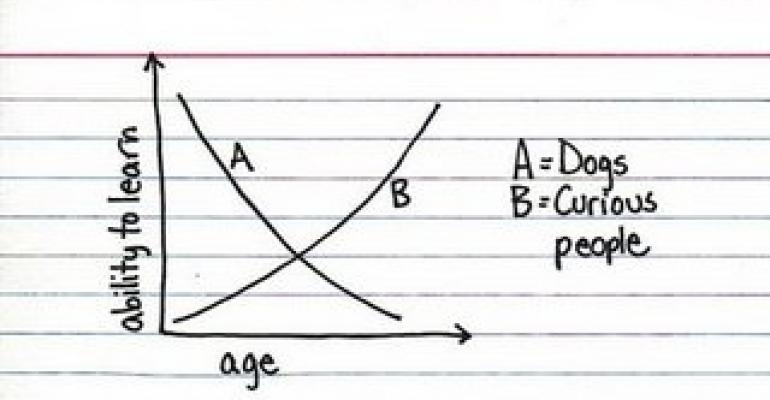 ability to learn
A
B
age
A = Dogs
B = Curious
people